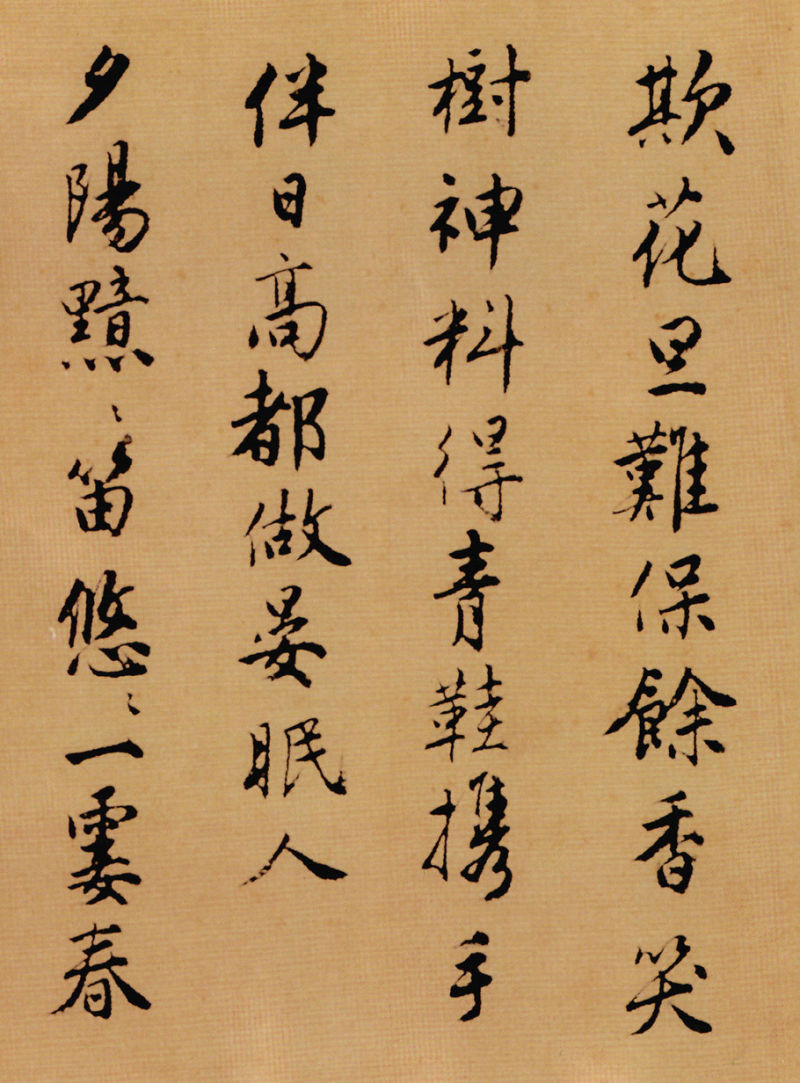 欺花旦難保餘香笑
樹神料得青鞋携手
伴日高都做晏眠人
夕陽黯〻笛悠〻一霎春